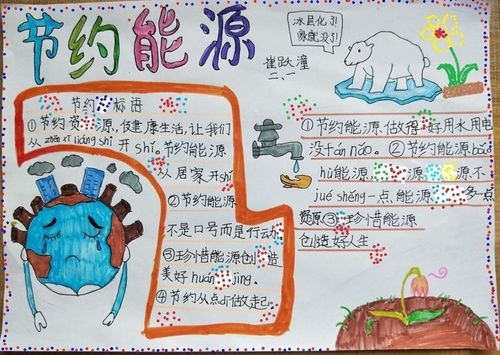 节约能源
崔跃潼
二、一
冰具化了!
家就没了!
节约 标语
①节约资 源,健康生活,让我们
从 zhēn xī liáng shí 开 shǐ。节约能源
从居家开 shǐ
②节约能源
不是口号而是行动
③珍惜能源创 造
美好 huán
④节约从点 dī 做起
①节约能源做得 好用水用电
没 fán nǎo。②节约能源
hù 能源 源不
jué shěng 一点,能源 多一点
资源 ③珍惜能源
创造好人生。